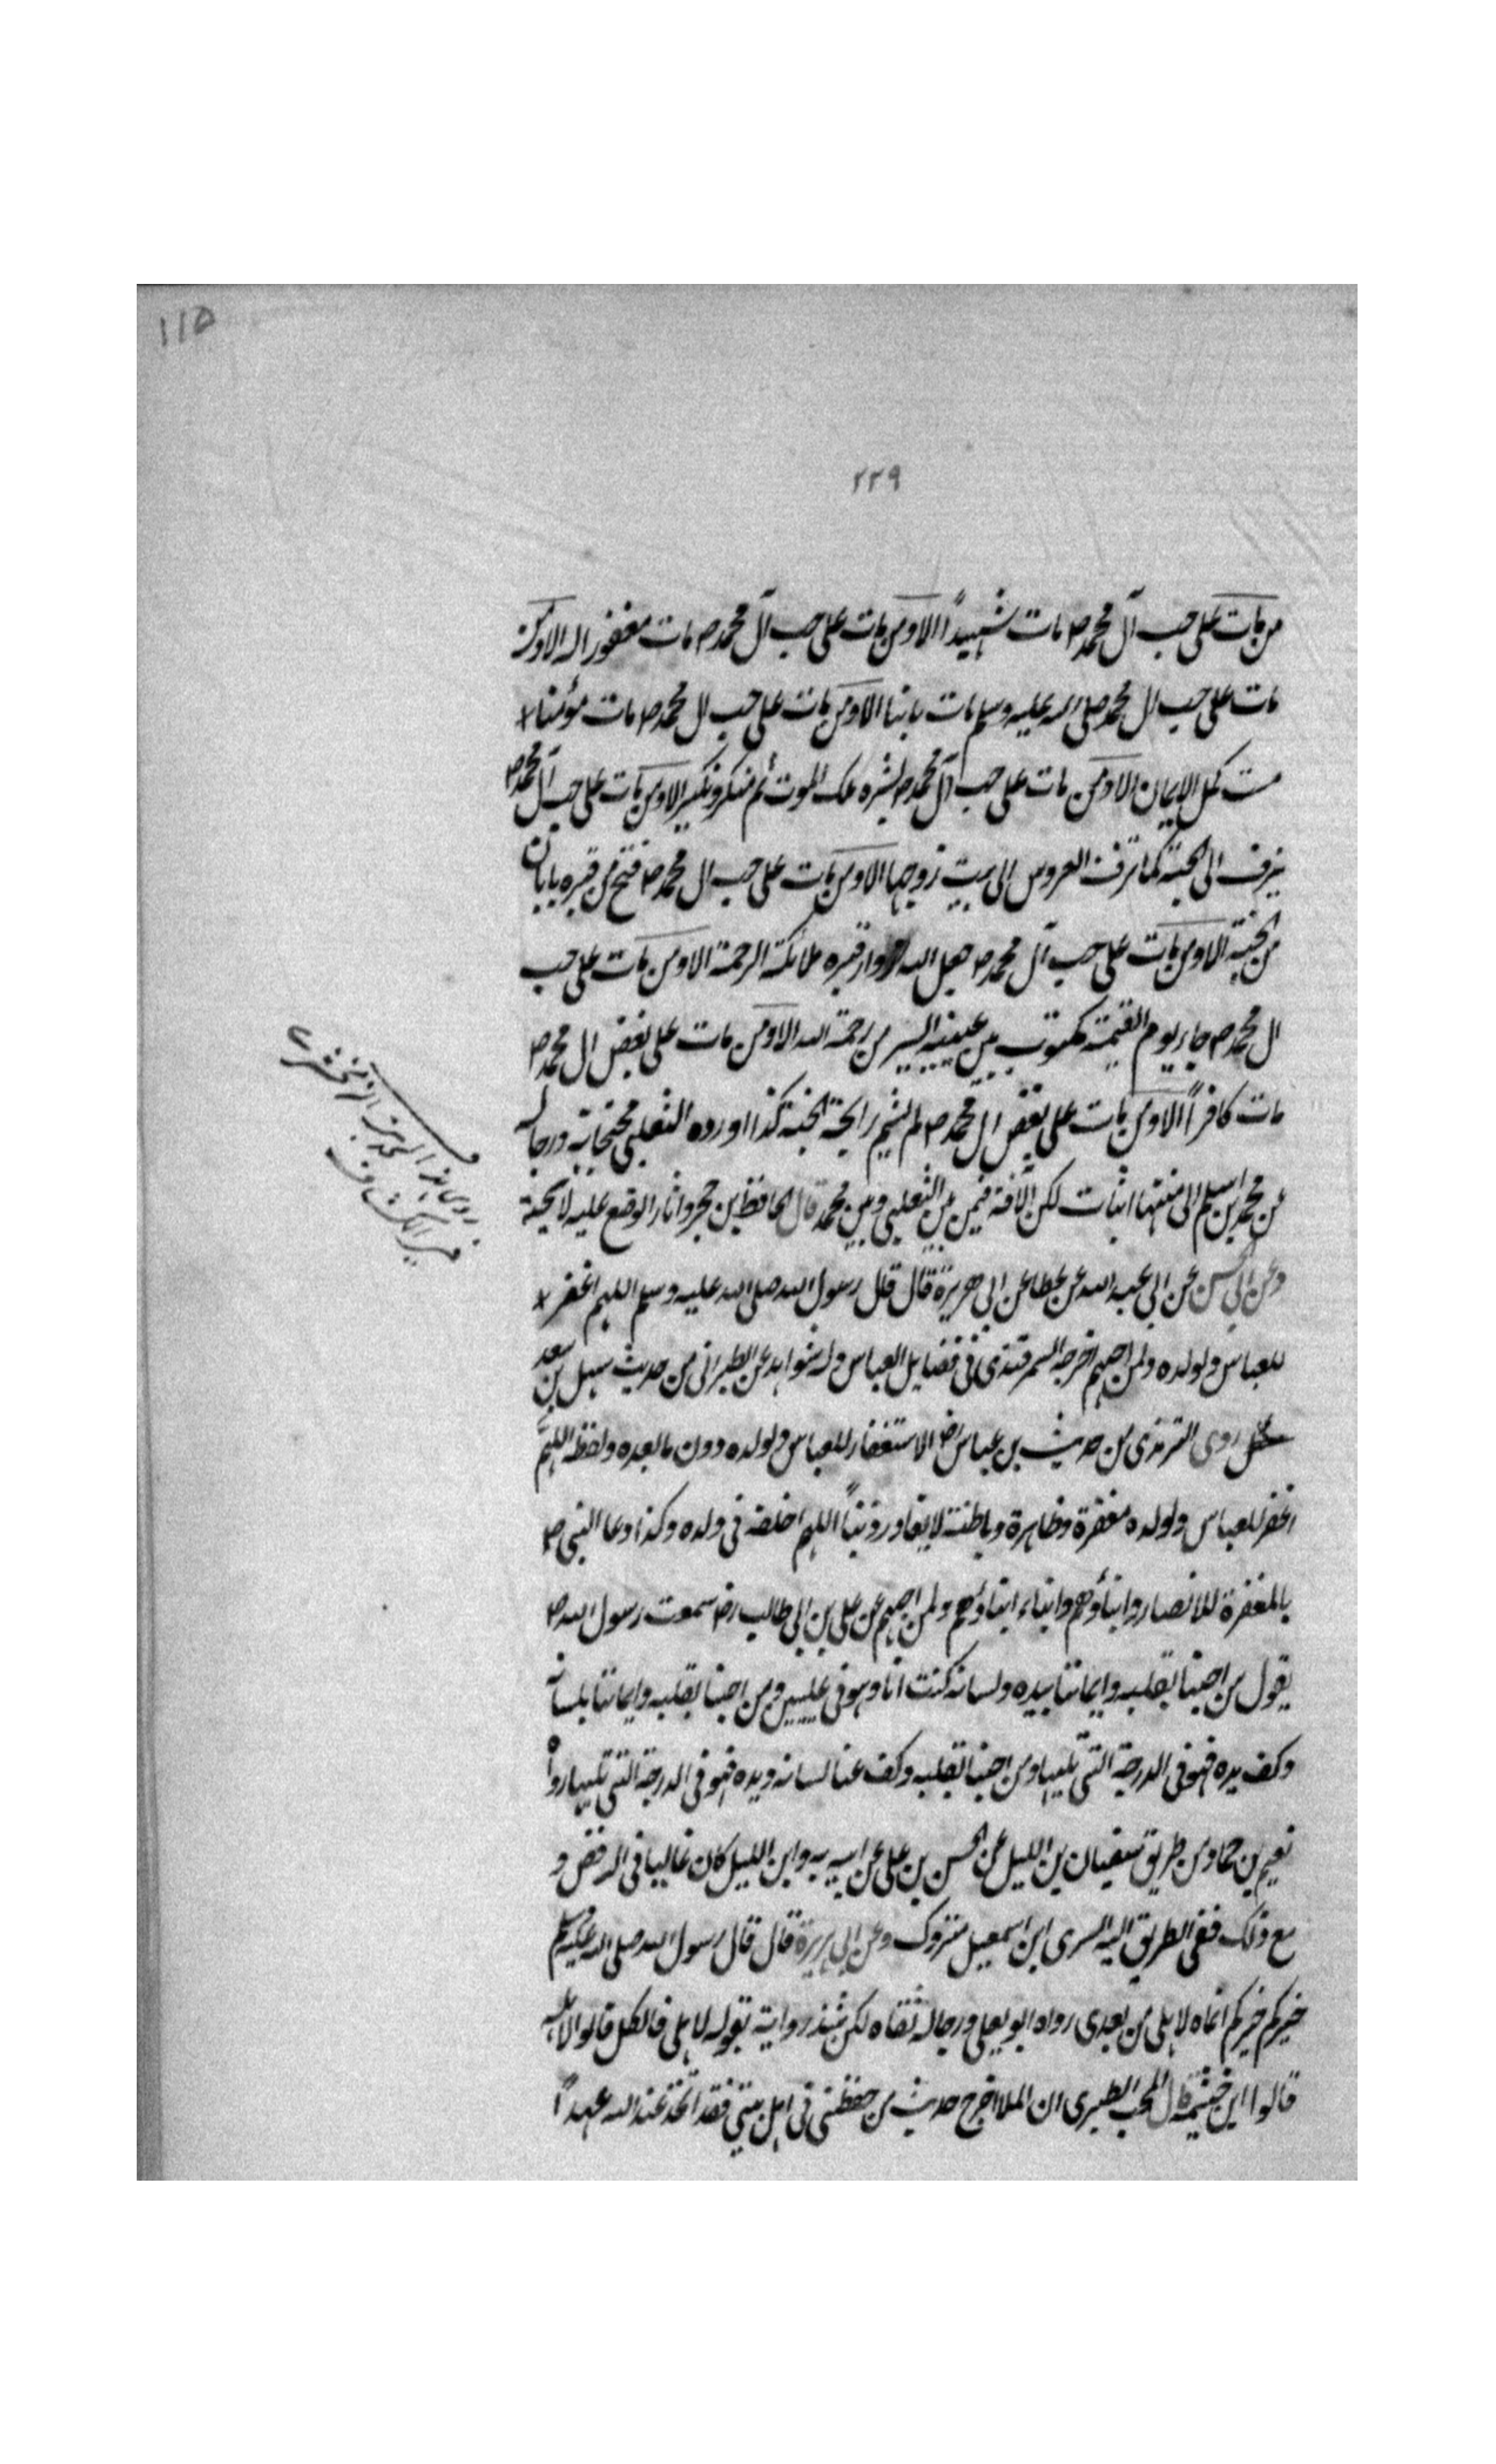 ١١٥
٢٢٩
من مات على حب آل محمد ص مات شهيداً الا ومن مات على حب آل محمد ص مات مغفورا له الا ومن
مات على حب ال محمد صلى الله عليه وسلم مات تائبا الا ومن مات على حب ال محمد ص مات مؤمنا
مستكمل الايمان الا ومن مات على حب آل محمد ص بشره ملك الموت ثم منكر ونكير الا ومن مات على حب آل محمد ص
يزف الى الجنة كما تزف العروس الى بيت زوجها الا ومن مات على حب ال محمد ص فتح من قبره بابان
من الجنة الا ومن مات على حب آل محمد ص جعل الله زوار قبره ملائكة الرحمة الا ومن مات على حب
ال محمد ص جاء يوم القيمة مكتوب بين عينيه السير من رحمة الله الا ومن مات على بغض ال محمد ص
مات كافراً الا ومن مات على بغض ال محمد ص لم يشم رايحة الجنة كذا اورده الثعلبى ورجاله
من محمد بن اسلم الى منتهاها اثبات لكن الآفة فيمن بين الثعلبى وبين محمد قال الحافظ بن حجر واثار الوضع عليه لايحة
وعن ابى الحسن عن ابى عبد الله عن عطا عن ابى هريرة قال قال رسول الله صلى الله عليه وسلم اللهم اغفر
للعباس ولولده ولمن احبهم اخرجه السمرقندى فى فضايل العباس وله شواهد عن الطبرانى من حديث سهل بن سعد
روى الترمذى من حديث بن عباس رض الاستغفار للعباس ولولده دون ما بعده ولفظه اللهم
اغفر للعباس ولولده مغفرة وظاهرة وباطنة لا يغادر ذنباً اللهم اخلفه فى ولده وكذا دعا النبى ص
بالمغفرة للانصار وابناؤهم وابناء ابناؤهم ولمن احبهم عن على بن ابى طالب رض سمعت رسول الله ص
يقول من احبنا بقلبه واعاننا بيده ولسانه كنت انا وهو فى عليين ومن احبنا بقلبه واعاننا بلسانه
وكف يده فهو فى الدرجة التى تليها ومن احبنا بقلبه وكف عنا لسانه ويده فهو فى الدرجة التى تليها رواه
نعيم بن حماد من طريق سفيان بن الليل عن الحسن بن على عن ابيه به وابن الليل كان غاليا فى الرفض و
مع ذلك ففى الطريق اليه السرى ابن اسمعيل متروك وعن ابى هريرة قال قال رسول الله صلى الله عليه وسلم
خيركم خيركم لاهلى من بعدى رواه ابو يعلى ورجاله ثقاه لكن شذ روايته بقوله لاهلى فالكل قالوا لاهله
قالوا ابن خيثمة قال المحب الطبرى ان الملا اخرج حديث من حفظنى فى اهل بيتى فقد اتخذ عند الله عهداً
روى هذا الحديث الزمخشرى
فى الكشاف